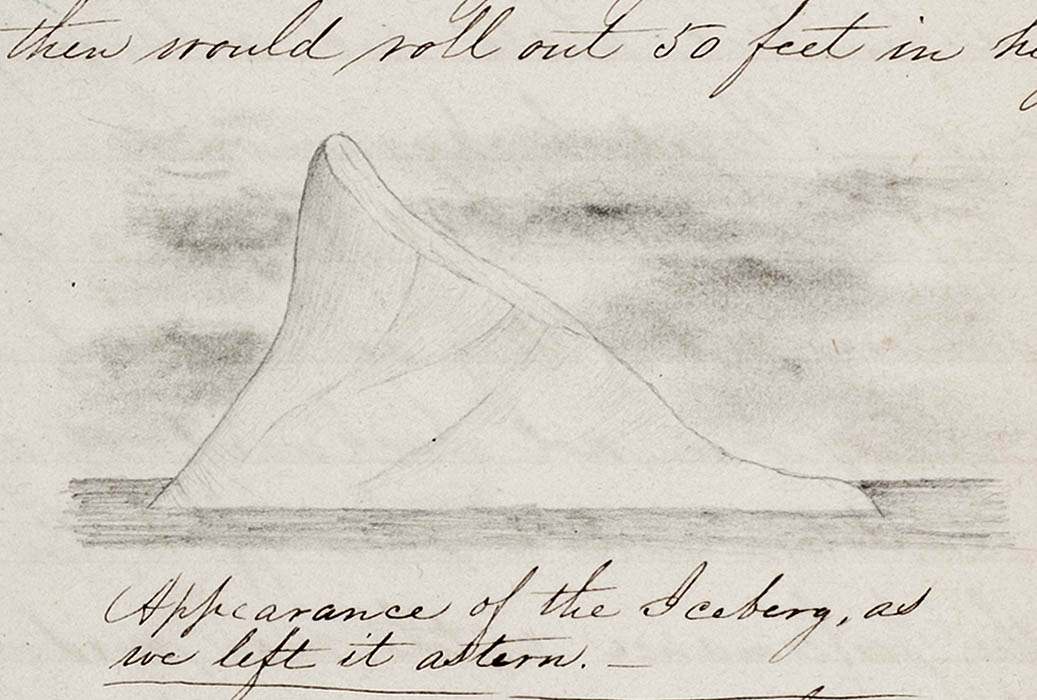 then would roll out 50 feet in
Appearance of the Iceberg, as
we left it astern. —